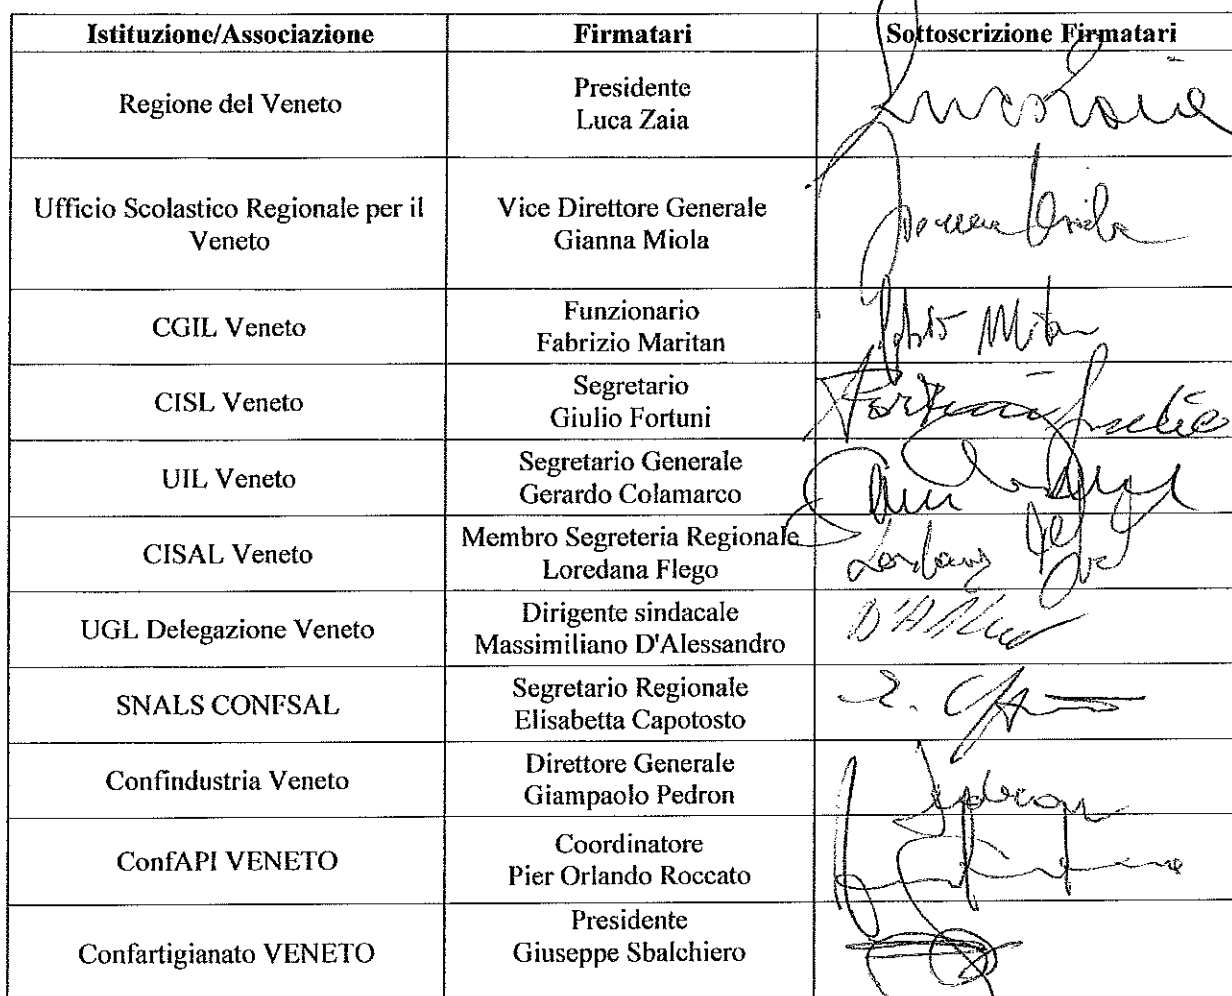 Istituzione/Associazione Firmatari Sottoscrizione Firmatari
Regione del Veneto
Presidente
Luca Zaia
Ufficio Scolastico Regionale per il
Veneto
Vice Direttore Generale
Gianna Miola
CGIL Veneto
Funzionario
Fabrizio Maritan
CISL Veneto
Segretario
Giulio Fortuni
Fortuni Giulio
UIL Veneto
Segretario Generale
Gerardo Colamarco
CISAL Veneto
Membro Segreteria Regionale
Loredana Flego
UGL Delegazione Veneto
Dirigente sindacale
Massimiliano D'Alessandro
SNALS CONFSAL
Segretario Regionale
Elisabetta Capotosto
Confindustria Veneto
Direttore Generale
Giampaolo Pedron
ConfAPI VENETO
Coordinatore
Pier Orlando Roccato
Confartigianato VENETO
Presidente
Giuseppe Sbalchiero